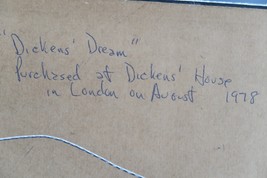 "Dickens' Dream"
Purchased at Dickens' House
in London on August 1978